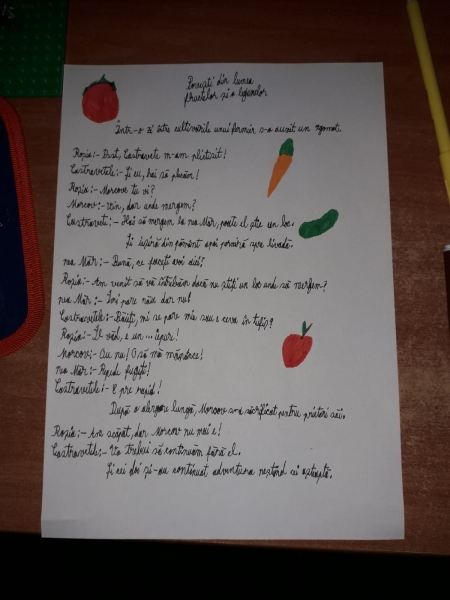 Povești din lumea
fructelor și a legumelor
Într-o zi între cultivările unui fermir s-a auzit un zgomot.
Roșia:- Psst, Castravete m-am plictisit!
Castravetele:- Și eu, hai să plecăm!
Roșia:- Morcove tu vi?
Morcov:- Vin, dar unde mergem?
Castravete:- Hai să mergem la nea Măr, poate el știe un loc.
Și ieșiră din pământ apoi porniră spre livadă.
nea Măr:- Bună, ce faceți voi aici?
Roșia:- Am venit să vă întrebăm dacă nu știți un loc unde să mergem?
nea Măr:- Îmi pare rău dar nu!
Castravetele:- Băieți, mi se pare mie sau e ceva în tufiș?
Roșia:- Îl văd, e un ... iepure!
Morcov:- Au nu! O să mă mănânce!
Nea Măr:- Repede fugiți!
Castravetele:- E pre rapid!
După o alergare lungă, Morcov s-a sacrificat pentru prieteni săi.
Roșia:- Am scăpat, dar Morcov nu mai e!
Castravetele:- Va trebui să continuăm fără el.
Și cei doi și-au continuat adventura neștiind ce așteaptă.